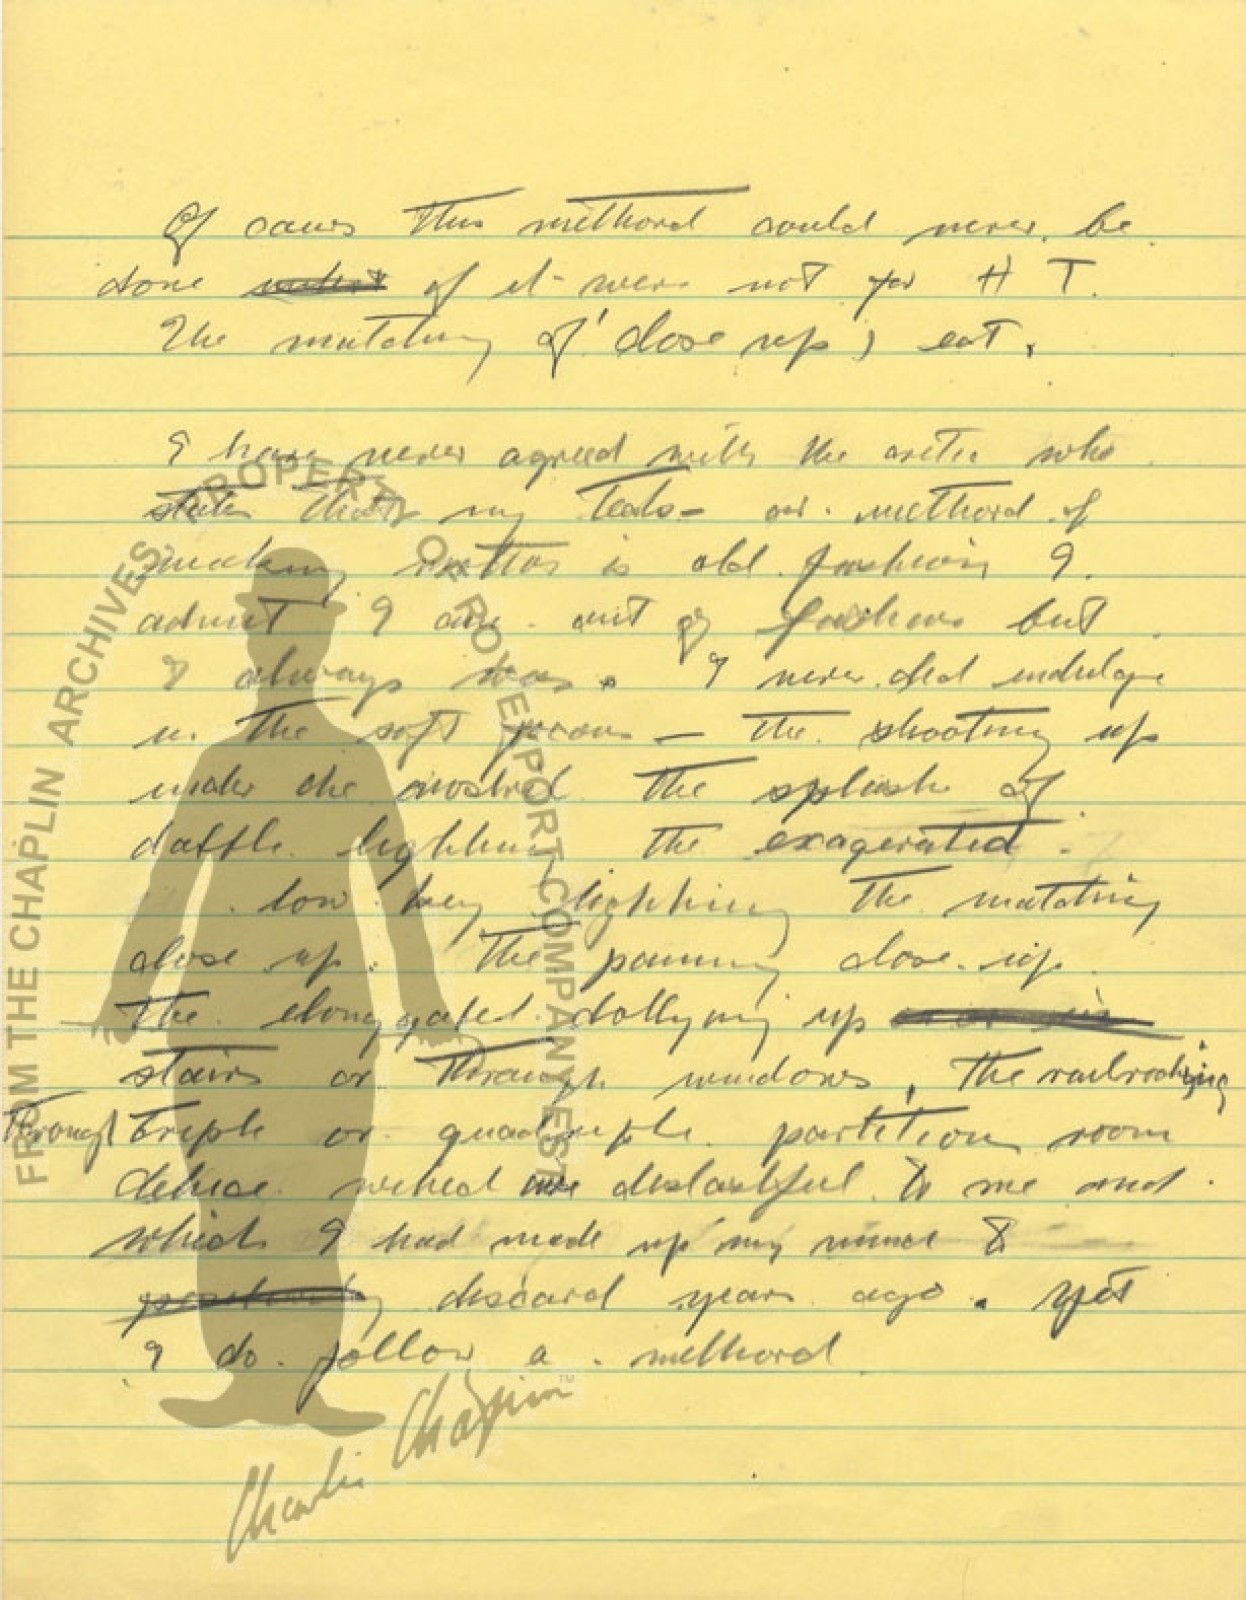 Of caurs This methord could never be
done if it were not for H T.
The matching of 'close up, ect,
I have never agreed with the critic who
states that my Teck- or methord of
making is old fashion I
admit I am out of fashion but
I always was. I never did indulge
in the soft focus – the shooting up
under the nostril the splash of
daffle lighting the exagerated
low key lighting the matching
close up. The panning close up
The elonggated dollying up
stairs or through windows, the railroading
through triple or quadruple partition room
device which are distastful to me and
which I had made up my mind &
discard years ago. yet
I do follow a methord
FROM THE CHAPLIN ARCHIVES, PROPERTY OF ROY EXPORT COMPANY EST
Charlie Chaplin™